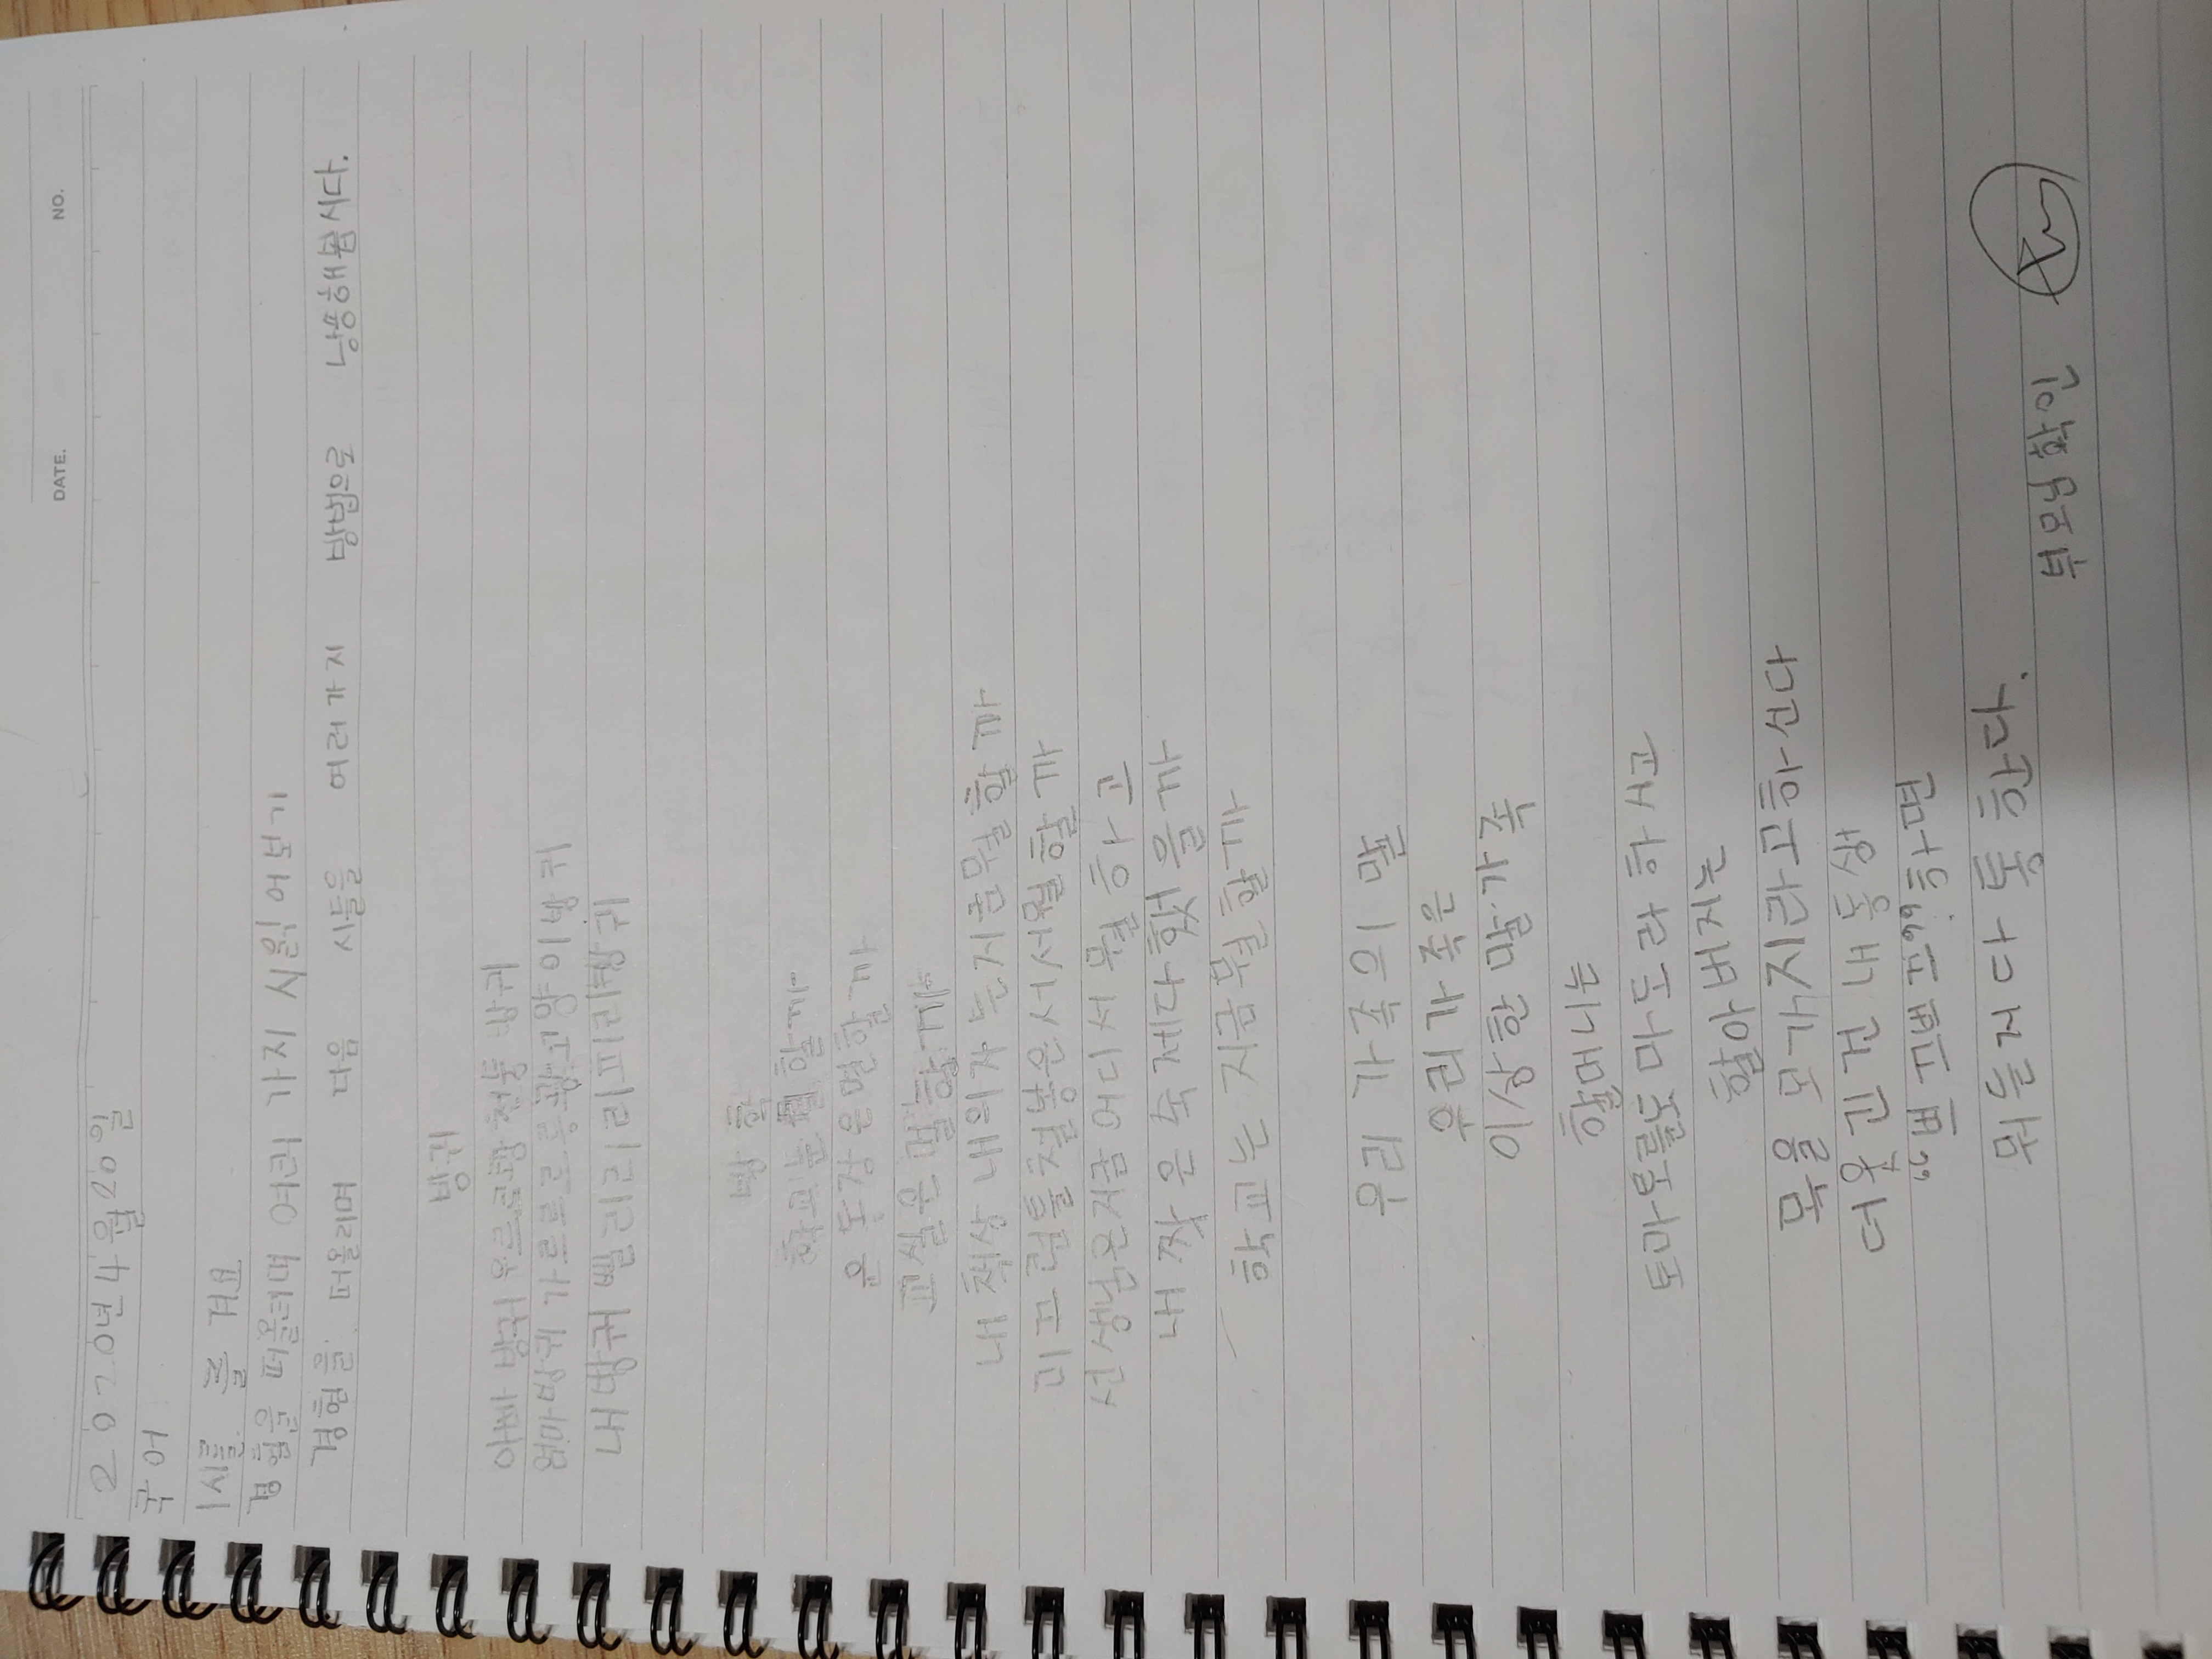 DATE. NO.
2020년 4월 20일
국어
1 시를 즐겨요
경험을 떠올리며 여러 가지 시 읽어보기
경험을 떠올리며 다음 시들을 여러가지 방법으로 낭송해봅시다.
방귀
아빠 방귀 우르르쾅 천둥 방귀
엄마방귀 가르르르릉 고양이방귀
내방귀 삘리리리피리방귀
방학
학교는 뭘 할까
운동장은 뭘할까
교실은 뭘할까
내 책상 내의자는지금뭘할까
미끄럼틀철봉은서서뭘할까
선생님은지금어디서 뭘 하고
내 짝은 숙제다했을까
학교는 지금뭘할까
우리 가족의 말
우리가족은
이상한 말 가족
할머니는
토마토를도마도라하시고
할아버지는
목을 모가지라고하신다
더웃긴건 내동생
“쁘끄쁘끄”하면
뭐든지다 통한다.
부모님확인